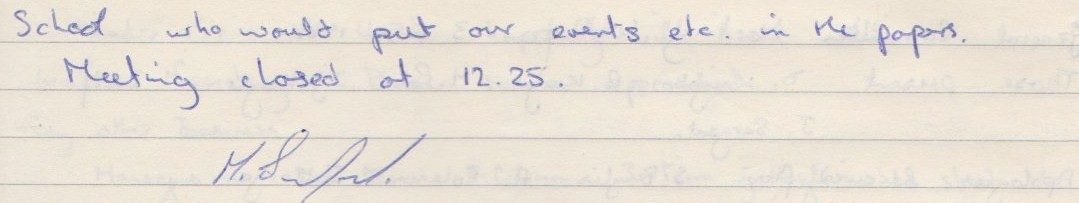 School who would put our events etc. in the papers.
Meeting closed at 12.25.
M.